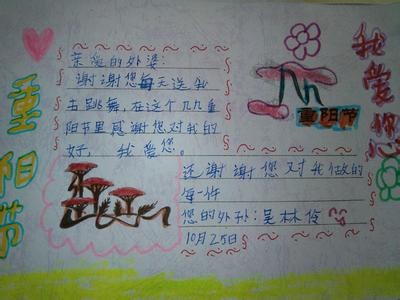 重阳节
亲爱的外婆:
谢谢您每天送我
去跳舞,在这个九九重
阳节里感谢您对我的
好, 我爱您。
九九
重阳节
我爱您
还谢谢您对我做的
每一件
您的外孙:吴林伶
10月25日